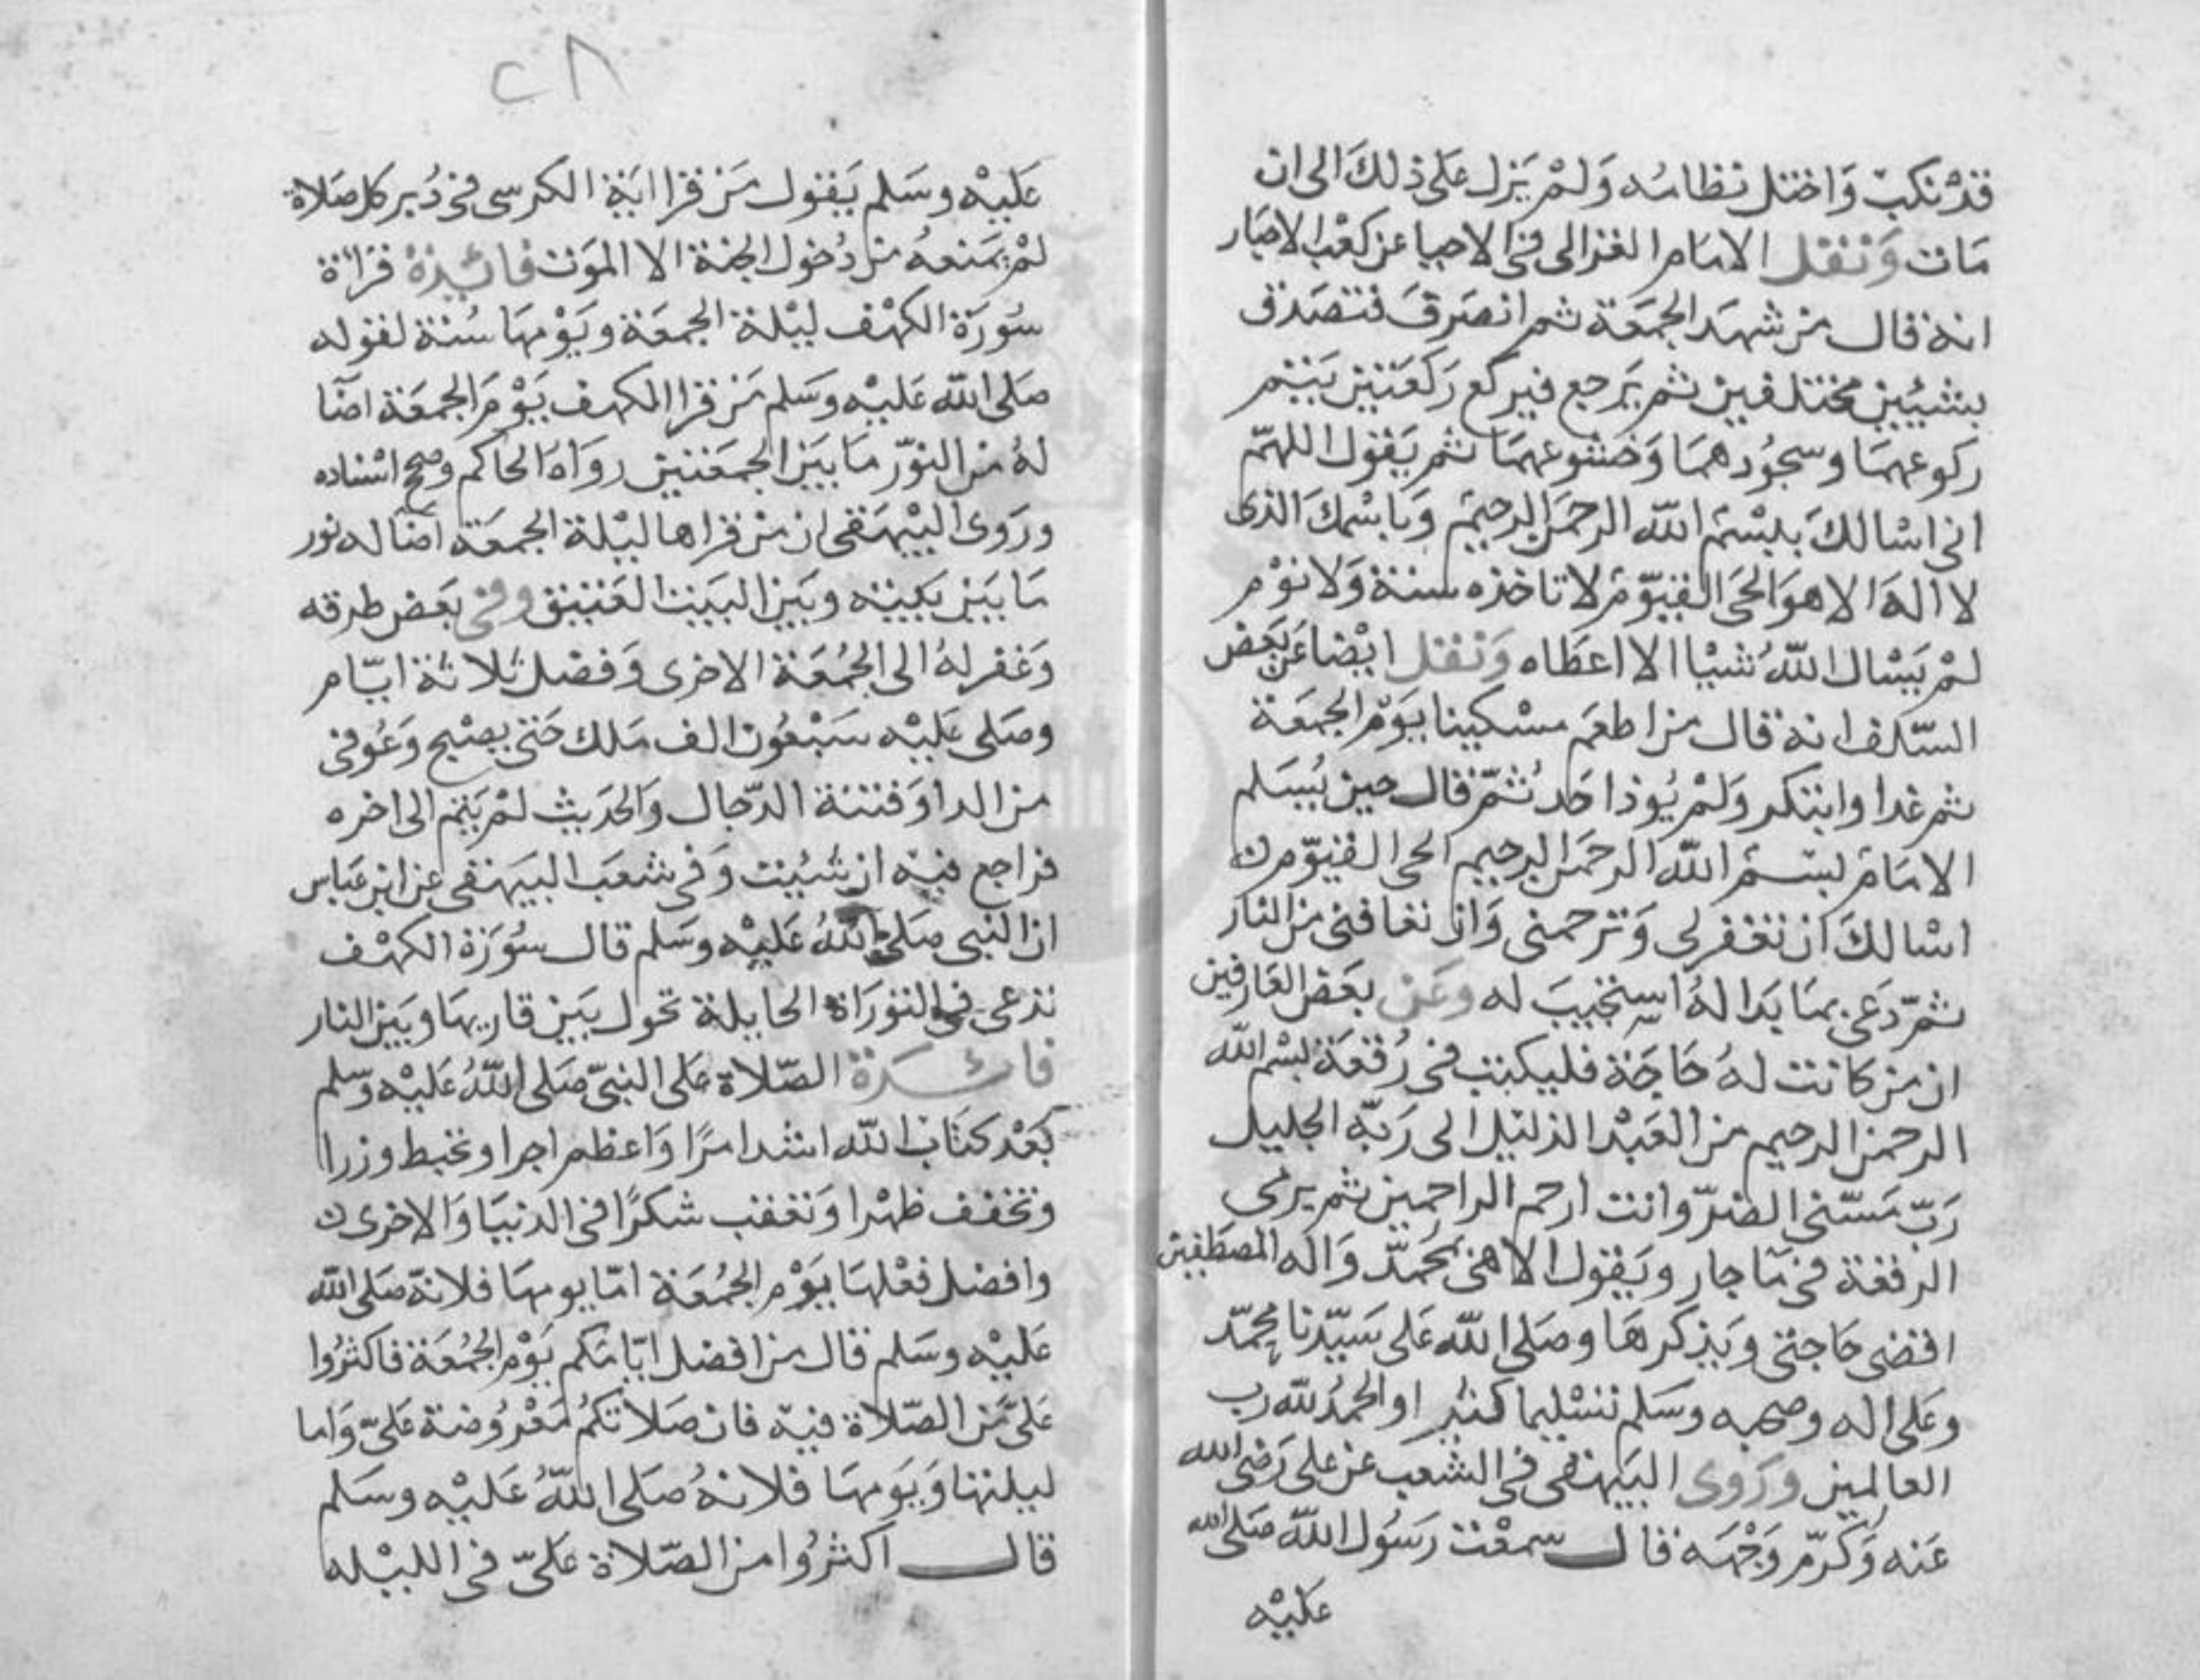 قد نكبت واختل نظامه ولم يزل على ذلك الى ان
مات ونقل الامام الغزالى فى الاحيا عن كعب الاحبار
انه قال من شهد الجمعة ثم انصرف فتصدق
بشيئين مختلفين ثم يرجع فيركع ركعتين يتم
ركوعهما وسجودهما وخشوعهما ثم يقول اللهم
انى اسالك ببسم الله الرحمن الرحيم وباسمك الذى
لا اله الا هو الحى القيوم لا تاخذه سنة ولا نوم
لم يسال الله شيا الا اعطاه ونقل ايضا عن بعض
السلف انه قال من اطعم مسكينا يوم الجمعة
ثم غدا وابتكر ولم يوذ احد ثم قال حين يسلم
الامام بسم الله الرحمن الرحيم الحى القيوم
اسالك ان تغفر لى وترحمنى وان تعافنى من النار
ثم دعى بما بدا له استجيب له وعن بعض العارفين
ان من كانت له حاجة فليكتب فى رقعة بسم الله
الرحمن الرحيم من العبد الذليل الى ربه الجليل
رب مسنى الضر وانت ارحم الراحمين ثم يرمى
الرقعة فى ما جار ويقول الاهى بمحمد واله المصطفين
اقضى حاجتى ويذكرها وصلى الله على سيدنا محمد
وعلى اله وصحبه وسلم تسليما كثيرا والحمد لله رب
العالمين وروى البيهقى فى الشعب عن على رضى الله
عنه وكرم وجهه قال سمعت رسول الله صلى الله
عليه
٢٨
عليه وسلم يقول من قرا اية الكرسى فى دبر كل صلاة
لم يمنعه من دخول الجنة الا الموت فائدة قراة
سورة الكهف ليلة الجمعة ويومها سنة لقوله
صلى الله عليه وسلم من قرا الكهف يوم الجمعة اضا
له من النور ما بين الجمعتين رواه الحاكم وصح اسناده
وروى البيهقى ان من قراها ليلة الجمعة اضا له نور
ما بين بينه وبين البيت العتيق وفى بعض طرقه
وغفر له الى الجمعة الاخرى وفضل ثلاثة ايام
وصلى عليه سبعون الف ملك حتى يصبح وعوفى
من الدا وفتنة الدجال والحديث لم يتم الى اخره
فراجع فيه ان شيت وفى شعب البيهقى عن ابن عباس
ان النبى صلى الله عليه وسلم قال سورة الكهف
تدعى فى التوراة الحايلة تحول بين قاريها وبين النار
فائدة الصلاة على النبى صلى الله عليه وسلم
بعد كتاب الله اشد امرا واعظم اجرا وتحبط وزرا
وتخفف ظهرا وتعقب شكرا فى الدنيا والاخرى
وافضل فعلها يوم الجمعة اما يومها فلانه صلى الله
عليه وسلم قال من افضل ايامكم يوم الجمعة فاكثروا
على من الصلاة فيه فان صلاتكم معروضة على واما
ليلتها ويومها فلانه صلى الله عليه وسلم
قال اكثروا من الصلاة على فى الليله